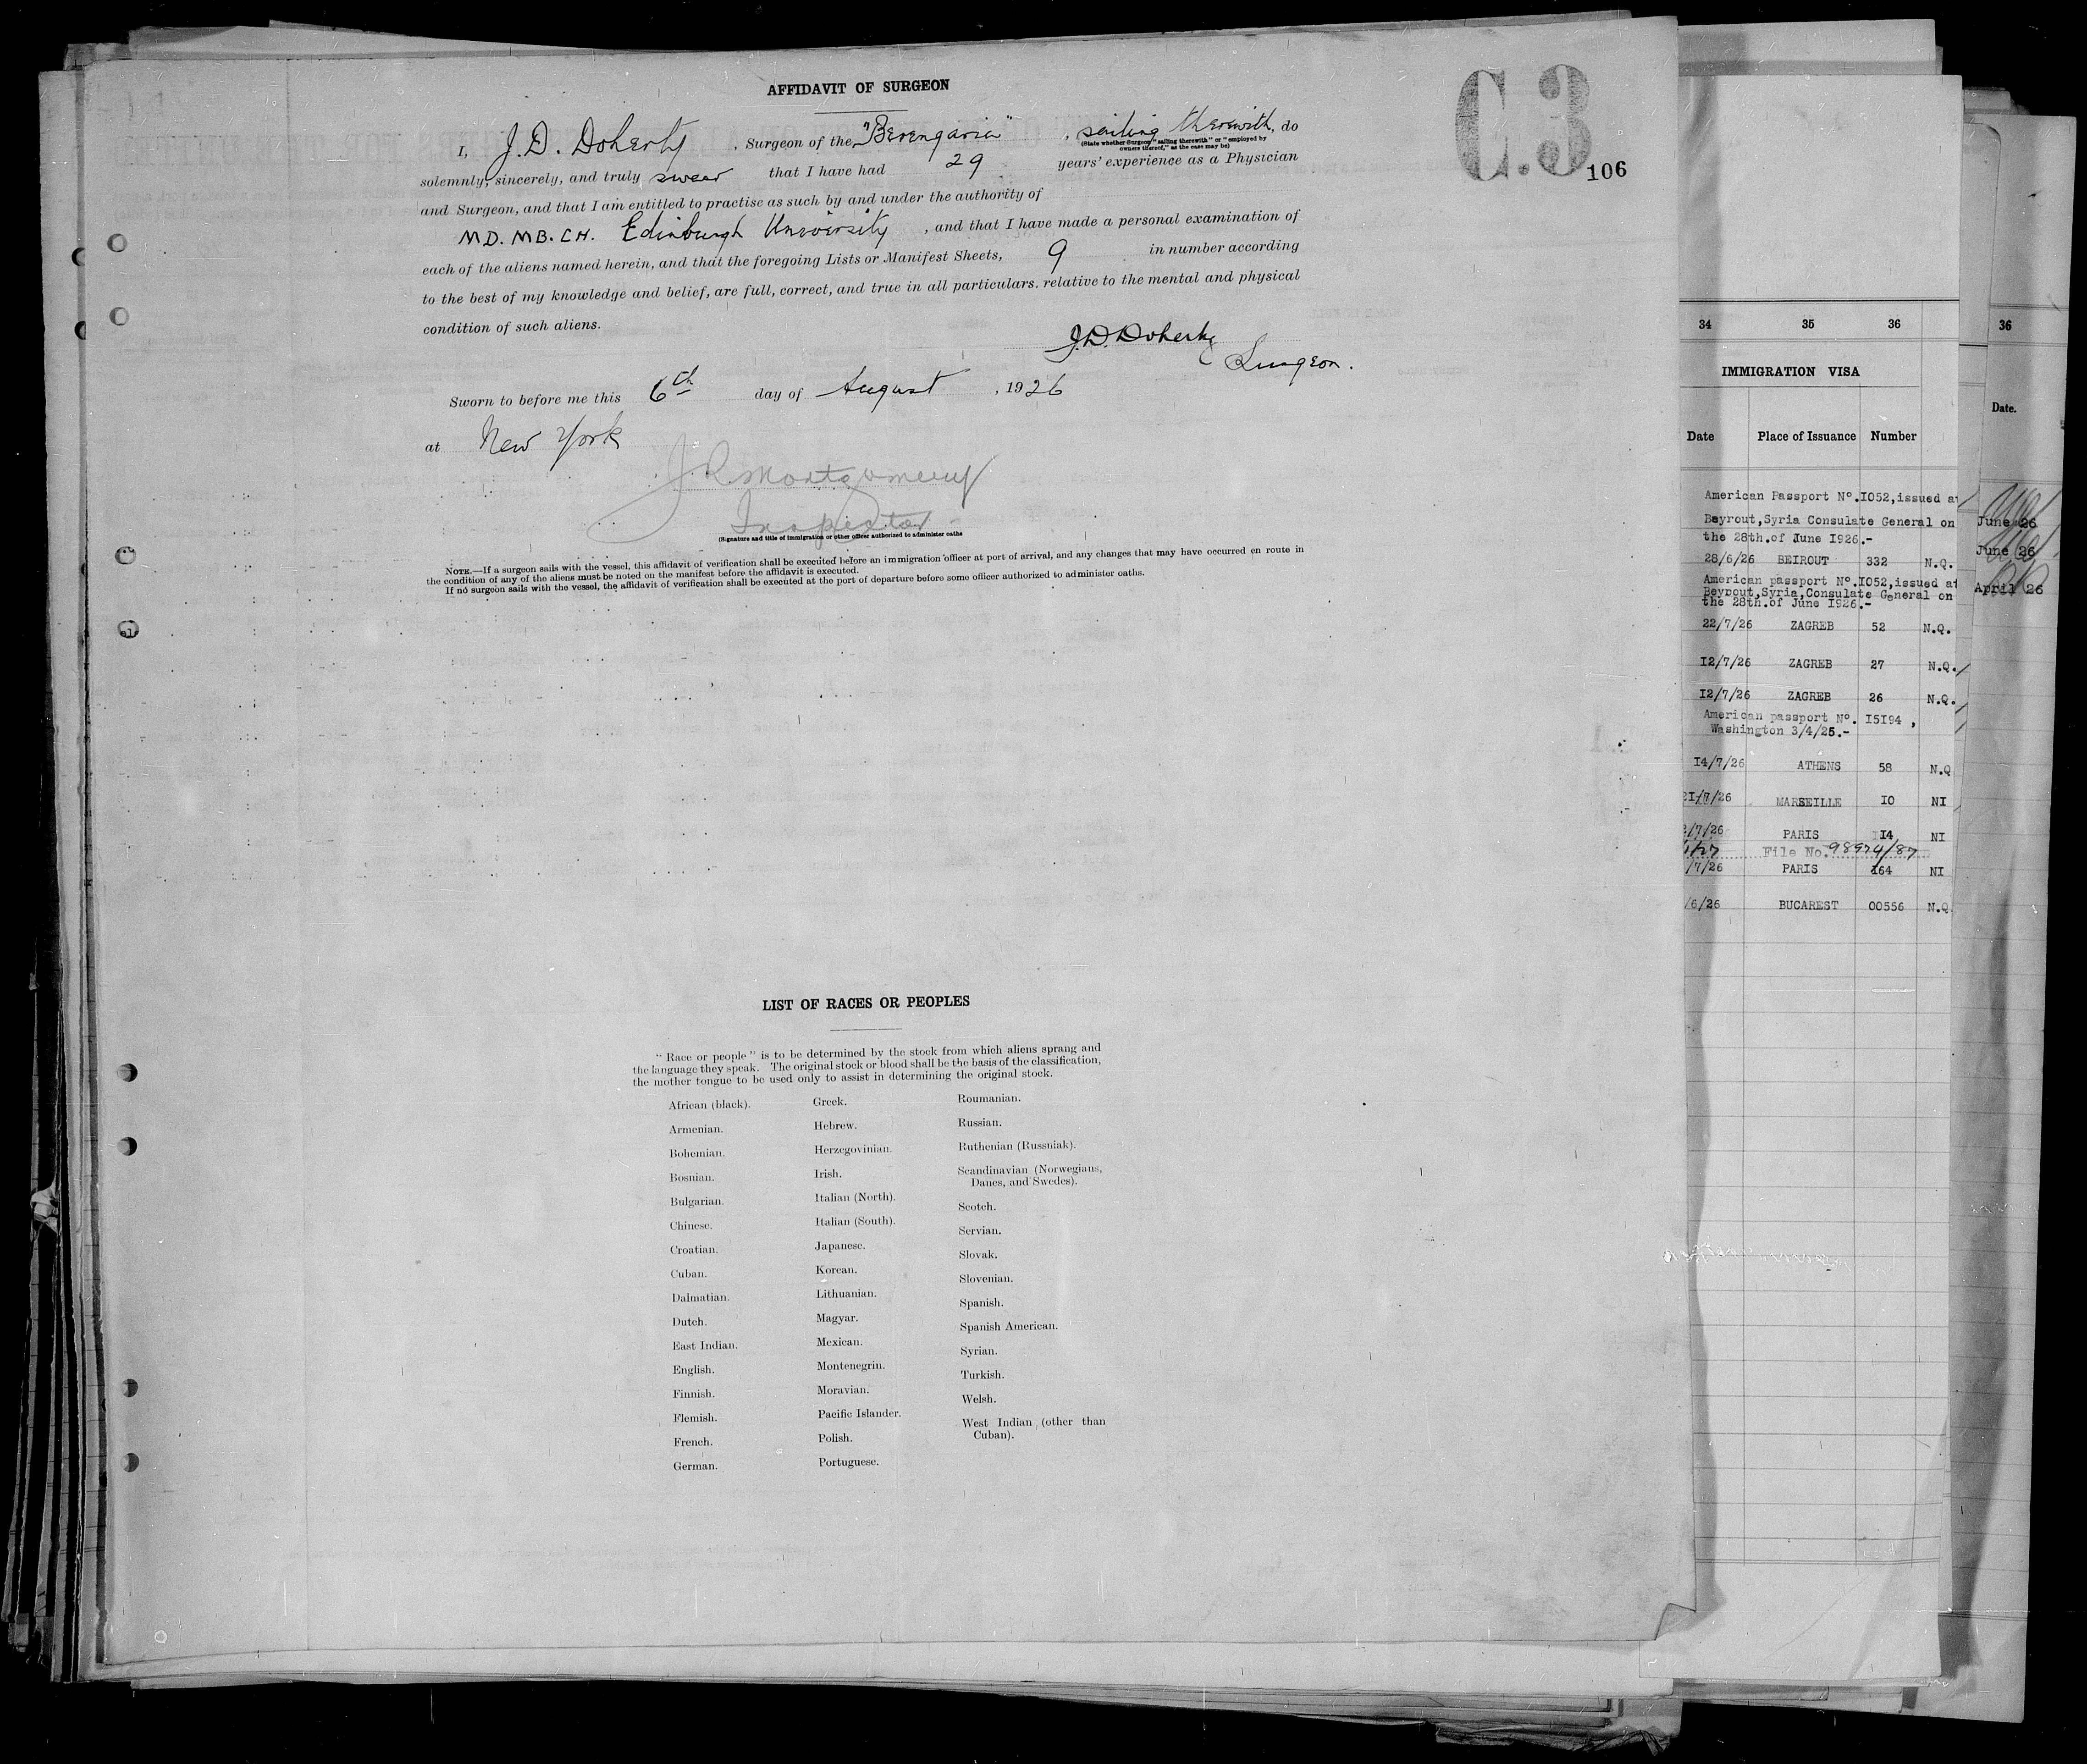 AFFIDAVIT OF SURGEON
C.3
106
I, J. D. Doherty, Surgeon of the "Berengaria", sailing therewith, do
(State whether Surgeon "sailing therewith" or "employed by
owners thereof," as the case may be)
solemnly, sincerely, and truly swear that I have had 29 years' experience as a Physician
and Surgeon, and that I am entitled to practise as such by and under the authority of
MD. MB. CH. Edinburgh University, and that I have made a personal examination of
each of the aliens named herein, and that the foregoing Lists or Manifest Sheets, 9 in number according
to the best of my knowledge and belief, are full, correct, and true in all particulars. relative to the mental and physical
condition of such aliens.
J. D. Doherty
Surgeon.
Sworn to before me this 6th day of August, 1926
at New York
J R Montgomery
Inspector
(Signature and title of immigration or other officer authorized to administer oaths
NOTE.—If a surgeon sails with the vessel, this affidavit of verification shall be executed before an immigration officer at port of arrival, and any changes that may have occurred en route in
the condition of any of the aliens must be noted on the manifest before the affidavit is executed.
If no surgeon sails with the vessel, the affidavit of verification shall be executed at the port of departure before some officer authorized to administer oaths.
LIST OF RACES OR PEOPLES
"Race or people" is to be determined by the stock from which aliens sprang and
the language they speak. The original stock or blood shall be the basis of the classification,
the mother tongue to be used only to assist in determining the original stock.
African (black).
Armenian.
Bohemian.
Bosnian.
Bulgarian.
Chinese.
Croatian.
Cuban.
Dalmatian.
Dutch.
East Indian.
English.
Finnish.
Flemish.
French.
German.
Greek.
Hebrew.
Herzegovinian.
Irish.
Italian (North).
Italian (South).
Japanese.
Korean.
Lithuanian.
Magyar.
Mexican.
Montenegrin.
Moravian.
Pacific Islander.
Polish.
Portuguese.
Roumanian.
Russian.
Ruthenian (Russniak).
Scandinavian (Norwegians,
Danes, and Swedes).
Scotch.
Servian.
Slovak.
Slovenian.
Spanish.
Spanish American.
Syrian.
Turkish.
Welsh.
West Indian (other than
Cuban).
34 35 36
IMMIGRATION VISA
Date Place of Issuance Number
American Passport Nº.I052, issued at
Beyrout, Syria Consulate General on
the 28th. of June I926.-
28/6/26 BEIROUT 332 N.Q.
American passport Nº.I052, issued at
Beyrout, Syria, Consulate General on
the 28th. of June I926.-
22/7/26 ZAGREB 52 N.Q.
I2/7/26 ZAGREB 27 N.Q.
I2/7/26 ZAGREB 26 N.Q.
American passport Nº. I5I94,
Washington 3/4/25.-
I4/7/26 ATHENS 58 N.Q
21/7/26 MARSEILLE IO NI
/7/26 PARIS I4 NI
File No. 98974/87
/7/26 PARIS 164 NI
/6/26 BUCAREST 00556 N.Q.
36
Date.
June 26
June 26
April 26